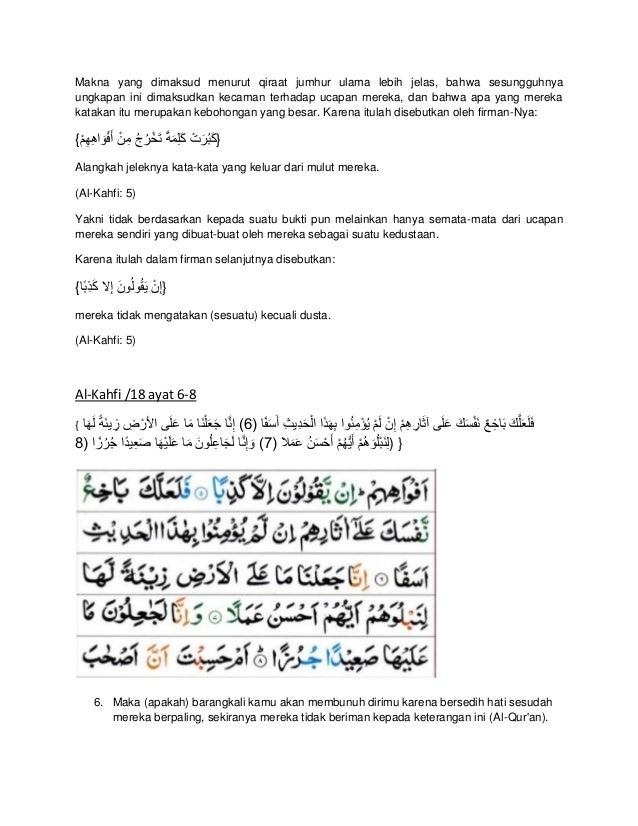 Makna yang dimaksud menurut qiraat jumhur ulama lebih jelas, bahwa sesungguhnya
ungkapan ini dimaksudkan kecaman terhadap ucapan mereka, dan bahwa apa yang mereka
katakan itu merupakan kebohongan yang besar. Karena itulah disebutkan oleh firman-Nya:
{كَبُرَتْ كَلِمَةً تَخْرُجُ مِنْ أَفْوَاهِهِمْ}
Alangkah jeleknya kata-kata yang keluar dari mulut mereka.
(Al-Kahfi: 5)
Yakni tidak berdasarkan kepada suatu bukti pun melainkan hanya semata-mata dari ucapan
mereka sendiri yang dibuat-buat oleh mereka sebagai suatu kedustaan.
Karena itulah dalam firman selanjutnya disebutkan:
{إِنْ يَقُولُونَ إِلا كَذِبًا}
mereka tidak mengatakan (sesuatu) kecuali dusta.
(Al-Kahfi: 5)
Al-Kahfi /18 ayat 6-8
فَلَعَلَّكَ بَاخِعٌ نَفْسَكَ عَلَى آثَارِهِمْ إِنْ لَمْ يُؤْمِنُوا بِهَذَا الْحَدِيثِ أَسَفًا (6) إِنَّا جَعَلْنَا مَا عَلَى الأرْضِ زِينَةً لَهَا }
{ لِنَبْلُوَهُمْ أَيُّهُمْ أَحْسَنُ عَمَلا (7) وَإِنَّا لَجَاعِلُونَ مَا عَلَيْهَا صَعِيدًا جُرُزًا (8)
اَفْوَاهِهِمْ ۗ اِنْ يَّقُوْلُوْنَ اِلَّا كَذِبًا ۝٥ فَلَعَلَّكَ بَاخِعٌ
نَّفْسَكَ عَلٰٓى اٰثَارِهِمْ اِنْ لَّمْ يُؤْمِنُوْا بِهٰذَا الْحَدِيْثِ
اَسَفًا ۝٦ اِنَّا جَعَلْنَا مَا عَلَى الْاَرْضِ زِيْنَةً لَّهَا
لِنَبْلُوَهُمْ اَيُّهُمْ اَحْسَنُ عَمَلًا ۝٧ وَاِنَّا لَجٰعِلُوْنَ مَا
عَلَيْهَا صَعِيْدًا جُرُزًا ۝٨ اَمْ حَسِبْتَ اَنَّ اَصْحٰبَ
6. Maka (apakah) barangkali kamu akan membunuh dirimu karena bersedih hati sesudah
mereka berpaling, sekiranya mereka tidak beriman kepada keterangan ini (Al-Qur'an).